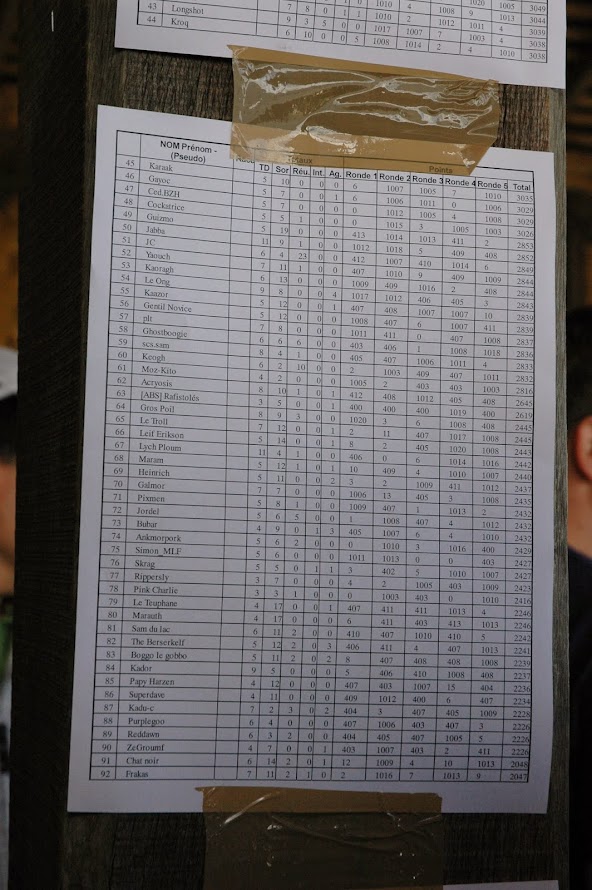 1020 1005 3049
8 0 1 1010 4 1008 9 1013 3044
7 8 0 1 1 1010 2 1012 1011 4 3039
43 Longshot 9 3 5 0 0 1017 1007 7 1003 4 3038
44 Kroq 6 10 0 0 5 1008 1014 2 4 1010 3038
NOM Prénom - (Pseudo) Points
TD Sor. Réu. Int. Ag. Ronde 1 Ronde 2 Ronde 3 Ronde 4 Ronde 5 Total
45 Karaak 5 10 0 0 0 6 1007 1005 7 1010 3035
46 Gayoc 5 7 0 0 1 6 1006 1011 0 1006 3029
47 Ced.BZH 5 7 0 0 0 0 1012 1005 4 1008 3029
48 Cockatrice 5 5 1 0 0 0 1015 3 1005 1003 3026
49 Guizmo 5 19 0 0 0 413 1014 1013 411 2 2853
50 Jabba 11 9 1 0 0 1012 1018 5 409 408 2852
51 JC 6 4 23 0 0 412 1007 410 1014 6 2849
52 Yaouch 7 11 1 0 0 407 1010 9 409 1009 2844
53 Kaoragh 6 13 0 0 0 1009 409 1016 2 408 2844
54 Le Ong 9 8 0 0 4 1017 1012 406 405 3 2843
55 Kaazor 5 12 0 0 1 407 408 1007 1007 10 2839
56 Gentil Novice 5 12 0 0 0 1008 407 6 1007 411 2839
57 plt 7 8 0 0 0 1011 411 0 407 1008 2837
58 Ghostboogie 6 6 6 0 0 403 406 1 1008 1018 2836
59 scs.sam 8 4 1 0 0 405 407 1006 1011 4 2833
60 Keogh 6 2 10 0 0 2 1003 409 407 1011 2832
61 Moz-Kito 4 2 0 0 0 1005 2 403 403 1003 2816
62 Acryosis 8 10 1 0 1 412 408 1012 405 408 2645
63 [ABS] Rafistolés 3 5 0 0 1 400 400 400 1019 400 2619
64 Gros Poil 8 9 3 0 0 1020 3 6 1008 408 2445
65 Le Troll 7 12 0 0 1 2 11 407 1017 1008 2445
66 Leif Erikson 5 14 0 0 1 8 2 405 1020 1008 2443
67 Lych Ploum 11 4 1 0 0 406 0 6 1014 1016 2442
68 Maram 5 12 1 0 1 10 409 4 1010 1007 2440
69 Heinrich 5 11 0 0 2 3 2 1009 411 1012 2437
70 Galmor 7 7 0 0 0 1006 13 405 3 1008 2435
71 Pixmen 5 8 1 0 0 1009 407 1 1013 2 2432
72 Jordel 5 6 5 0 0 1 1008 407 4 1012 2432
73 Bubar 4 9 0 1 3 405 1007 6 4 1010 2432
74 Ankmorpork 5 6 2 0 0 0 1010 3 1016 400 2429
75 Simon_MLF 5 6 0 0 0 1011 1013 0 0 403 2427
76 Skrag 5 5 0 1 1 3 402 5 1010 1007 2427
77 Rippersly 3 7 0 0 0 4 2 1005 403 1009 2423
78 Pink Charlie 3 3 1 0 0 0 1003 403 0 1010 2416
79 Le Teuphane 4 17 0 0 1 407 411 411 1013 4 2246
80 Marauth 4 17 0 0 0 6 411 403 413 1013 2246
81 Sam du lac 6 11 2 0 0 410 407 1010 410 5 2242
82 The Berserkelf 5 12 2 0 3 406 411 4 407 1013 2241
83 Boggo le gobbo 5 11 2 0 2 8 407 408 408 1008 2239
84 Kador 9 5 0 0 0 5 406 410 1008 408 2237
85 Papy Harzen 4 12 0 0 0 407 403 1007 15 404 2236
86 Superdave 4 11 0 0 0 409 1012 400 6 407 2234
87 Kadu-c 7 2 3 0 2 404 3 407 405 1009 2228
88 Purplegoo 6 4 0 0 0 407 1006 403 407 3 2226
89 Reddawn 6 3 2 0 0 404 405 407 1005 5 2226
90 ZeGroumf 4 7 0 0 1 403 1007 403 2 411 2226
91 Chat noir 6 14 2 0 1 12 1009 4 10 1013 2048
92 Frakas 7 11 2 1 0 2 1016 7 1013 9 2047